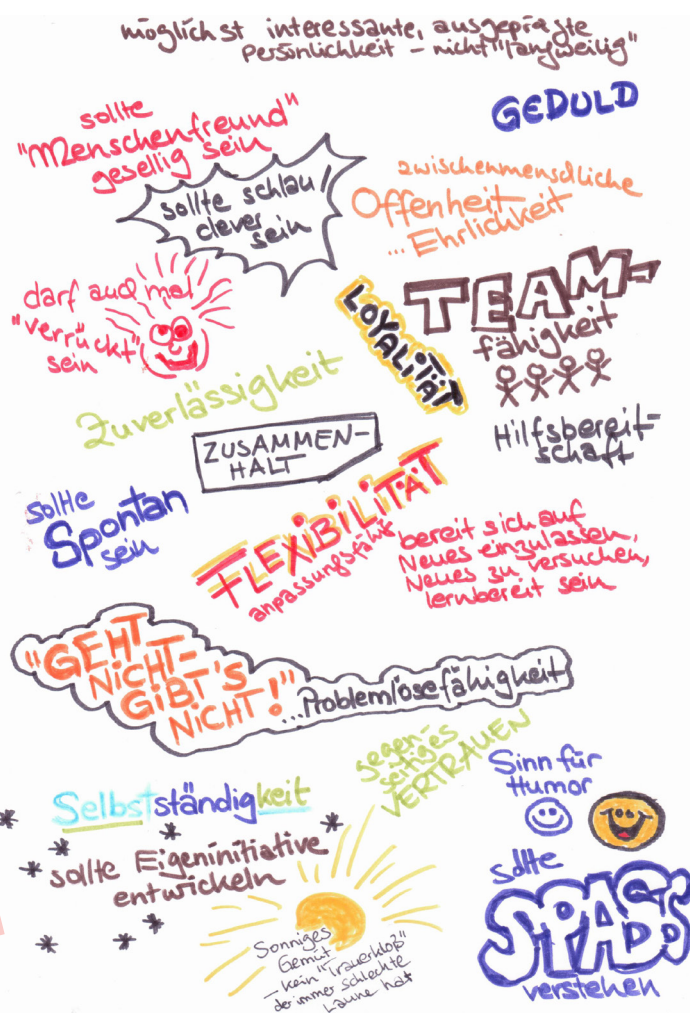 möglichst interessante, ausgeprägte
Persönlichkeit – nicht "langweilig"
GEDULD
sollte
"Menschenfreund"
gesellig sein
sollte schlau /
clever
sein
zwischenmenschliche
Offenheit
... Ehrlichkeit
darf auch mal
"verrückt"
sein
LOYALITÄT
TEAM-
fähigkeit
Zuverlässigkeit
ZUSAMMEN-
HALT
Hilfsbereit-
schaft
sollte
Spontan
sein
FLEXIBILITÄT
anpassungsfähig
bereit sich auf
Neues einzulassen,
Neues zu versuchen,
lernbereit sein
"GEHT
NICHT-
GIBT'S
NICHT!"
...Problemlösefähigkeit
gegen-
seitiges
VERTRAUEN
Sinn für
Humor
Selbstständigkeit
sollte Eigeninitiative
entwickeln
sollte
SPASS
verstehen
Sonniges
Gemüt
– kein "Trauerkloß"
der immer schlechte
Laune hat